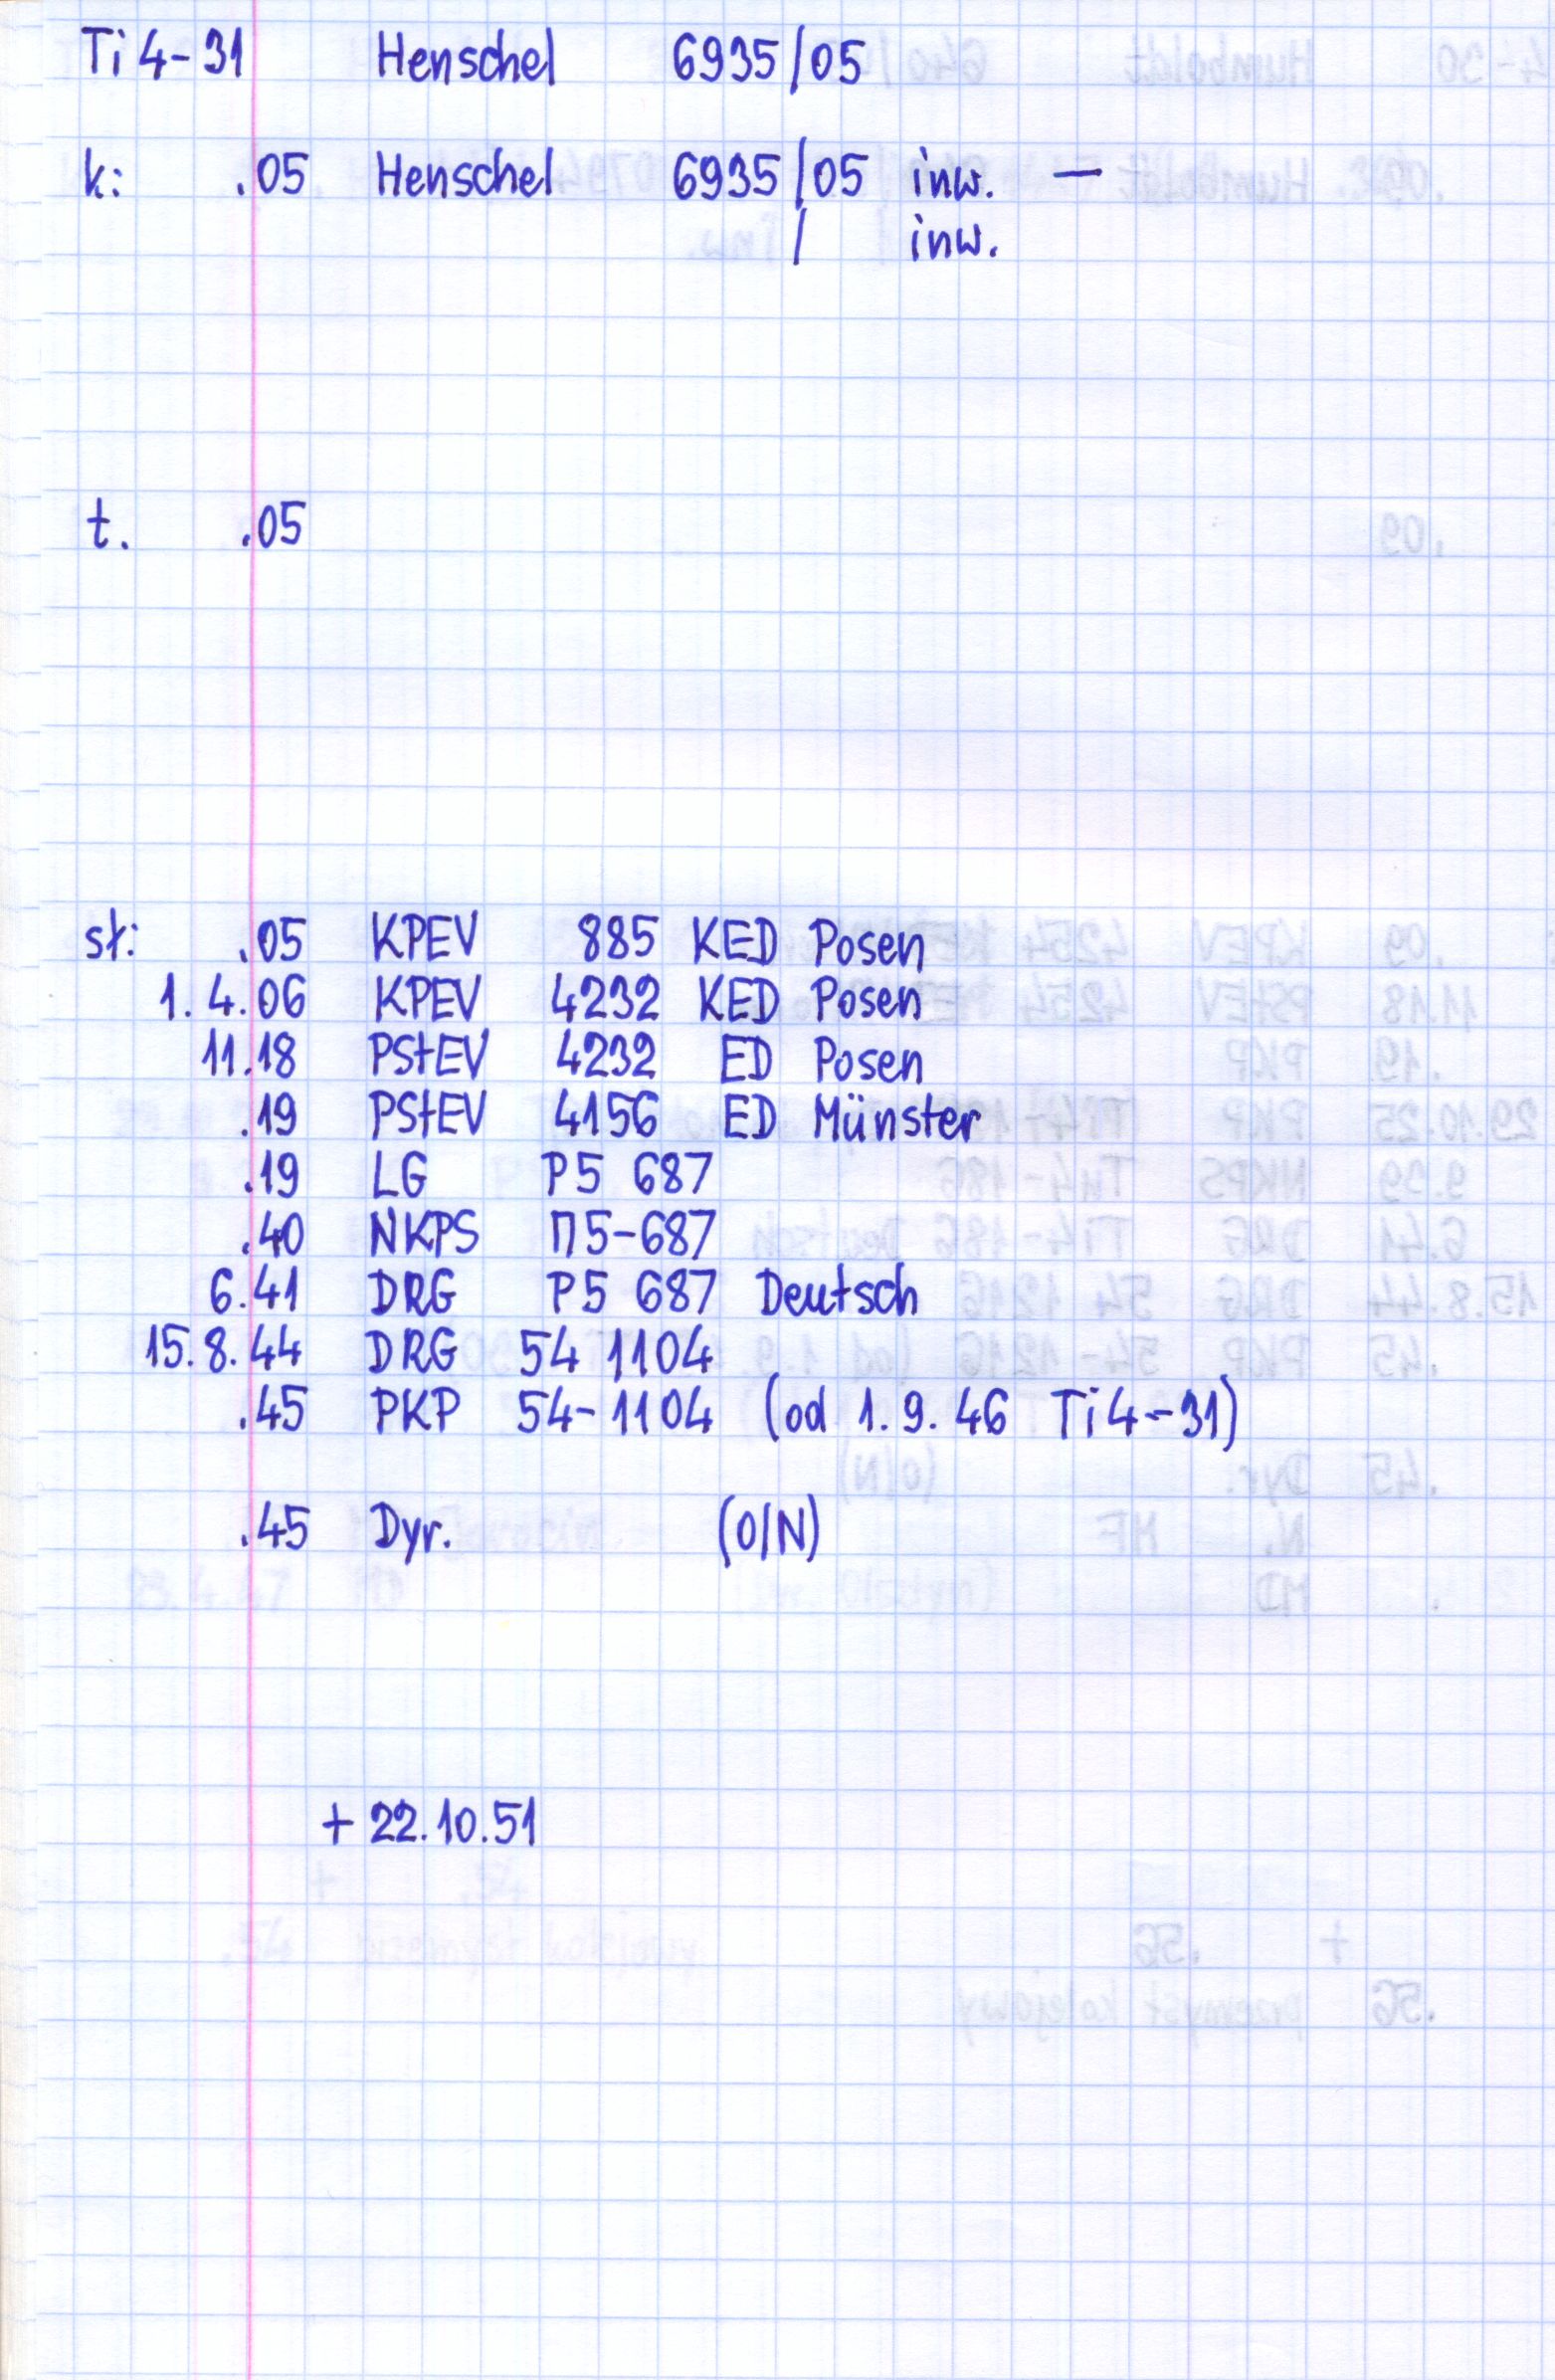 Ti 4-31 Henschel 6935/05
k: .05 Henschel 6935/05 inw. —
/ inw.
t. .05
st: .05 KPEV 885 KED Posen
1.4.06 KPEV 4232 KED Posen
11.18 PStEV 4232 ED Posen
.19 PStEV 4156 ED Münster
.19 LG P5 687
.40 NKPS П5-687
6.41 DRG P5 687 Deutsch
15.8.44 DRG 54 1104
.45 PKP 54-1104 (od 1.9.46 Ti4-31)
.45 Dyr. (O/N)
+ 22.10.51